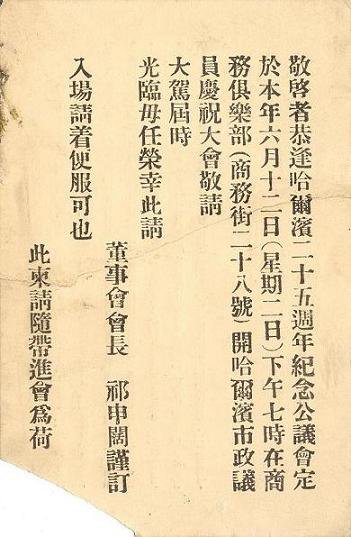 敬啓者恭逢哈爾濱二十五週年紀念公議會定
於本年六月十二日(星期二日)下午七時在商
務俱樂部(商務街二十八號)開哈爾濱市政議
員慶祝大會敬請
大駕屆時
光臨毋任榮幸此請
董事會會長　祁申闊謹訂
入場請着便服可也
此柬請隨帶進會爲荷